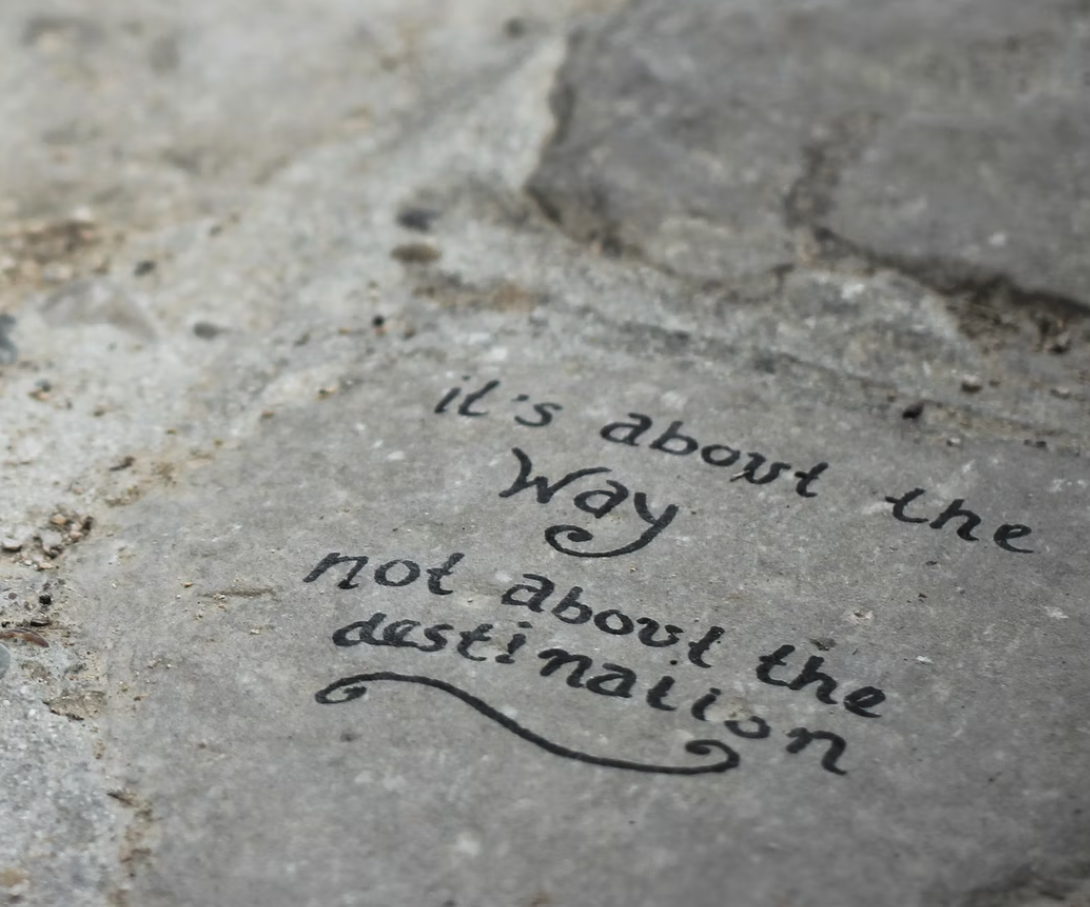 it's about the
Way
not about the
destination